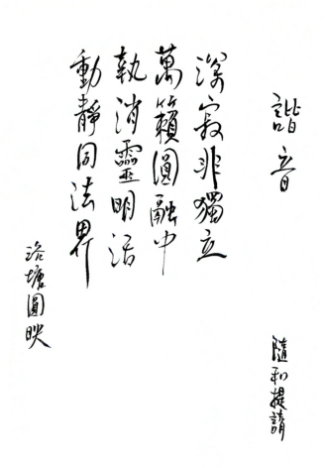 諧音
隨和提請
深寂非獨立
萬籟圓融中
執消靈明活
動靜同法界
洛塘圓映